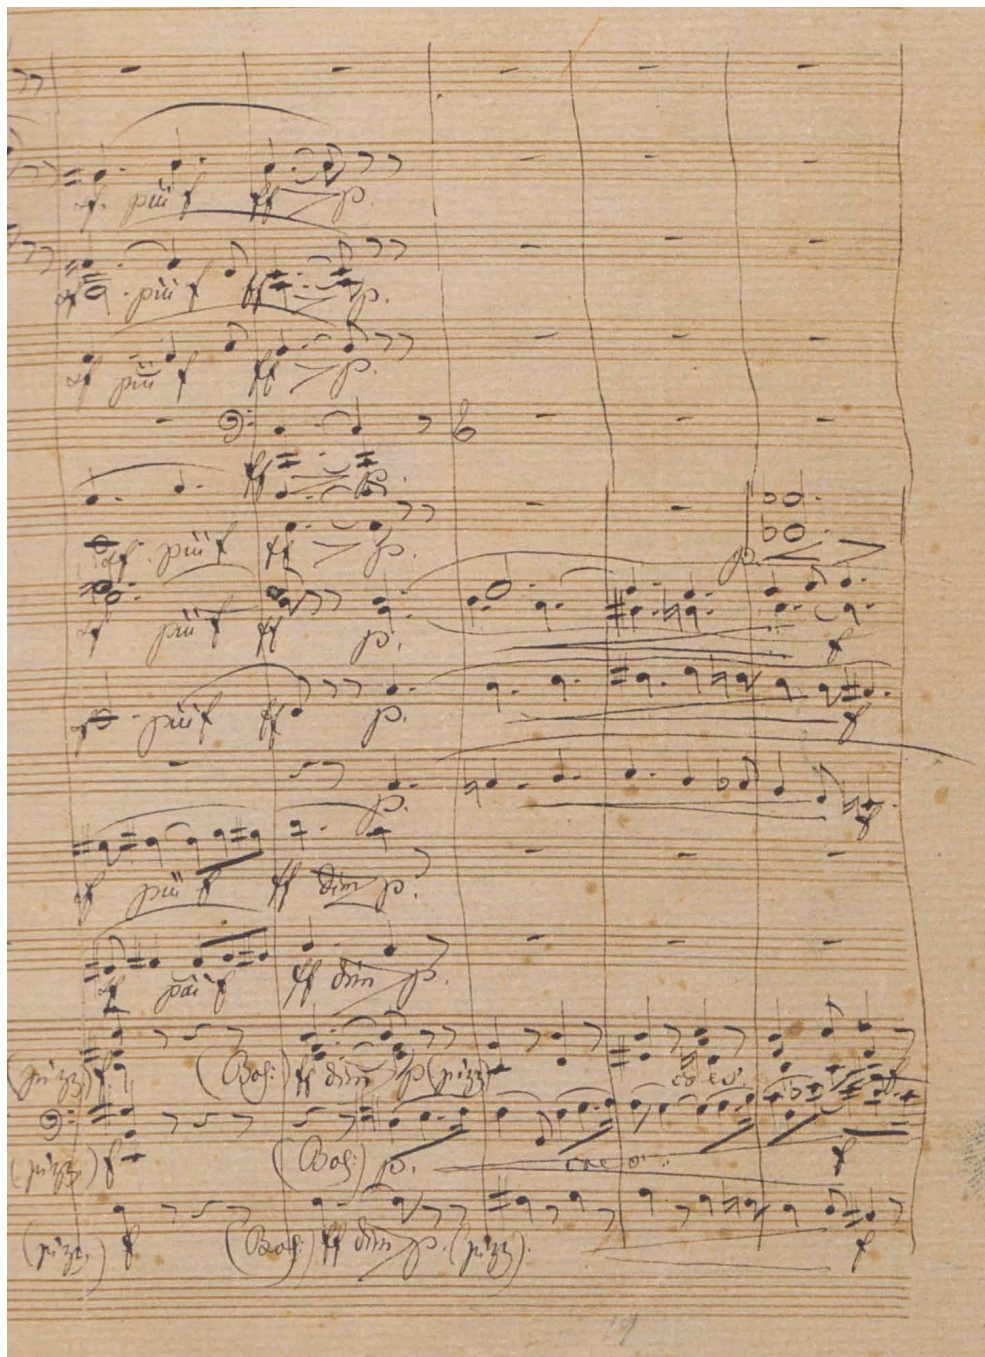 sf. più f ff p.
sf. più f ff p.
sf più f ff p.
ff p.
sf. più f ff p. p.
sf più f ff p. f
sf più f ff p. f
p. f
sf più f ff dim p.
sf più f ff dim p.
(pizz) f. (Bog:) ff dim p (pizz)
(pizz.) f (Bog:) p. f
(pizz.) f (Bog:) ff dim p. (pizz). f